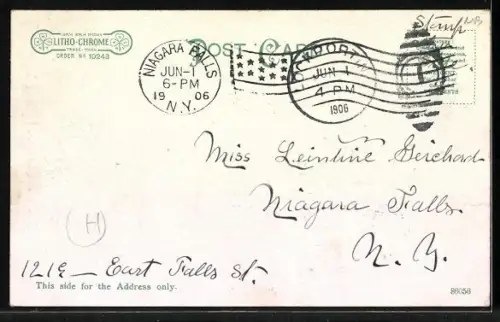 LITHO-CHROME
TRADE MARK
ORDER Nº 10343
POST CARD
Stamp
NIAGARA FALLS
JUN-1
6-PM
1906
N.Y.
LOCKPORT
JUN 1
4 PM
1906
1
Miss Leintine Geichard
Niagara Falls
N. Y.
H
1219 East Falls St.
This side for the Address only.
86058